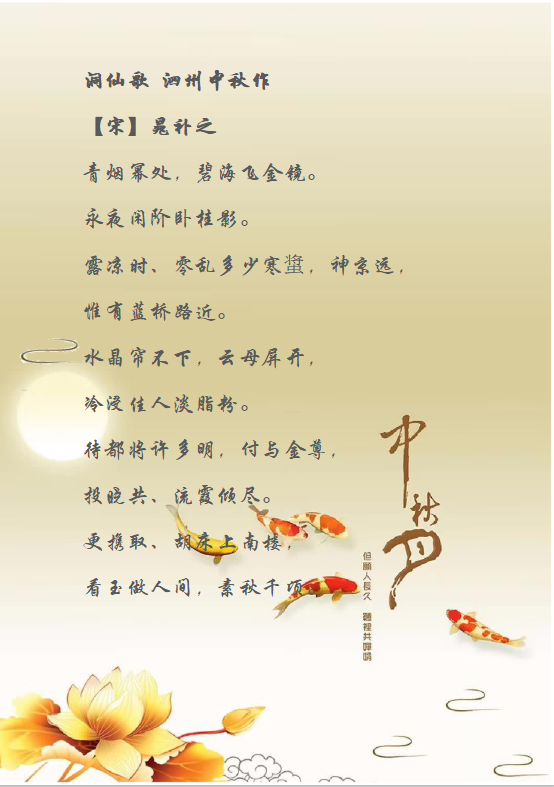 洞仙歌 泗州中秋作
【宋】晁补之
青烟幂处，碧海飞金镜。
永夜闲阶卧桂影。
露凉时、零乱多少寒螀，神京远，
惟有蓝桥路近。
水晶帘不下，云母屏开，
冷浸佳人淡脂粉。
待都将许多明，付与金尊，
投晓共、流霞倾尽。
更携取、胡床上南楼，
看玉做人间，素秋千顷。
中秋月
但願人長久
共嬋娟